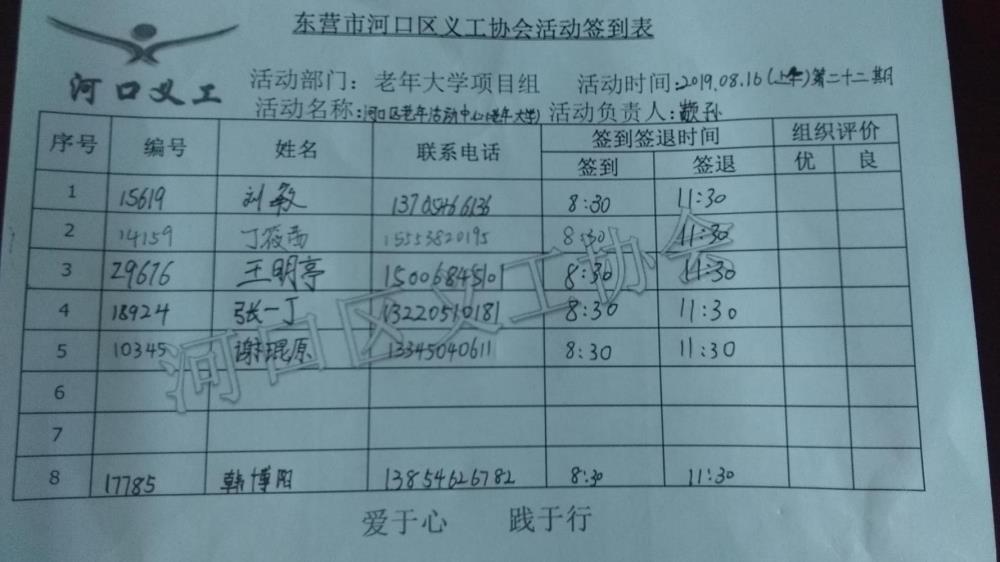 东营市河口区义工协会活动签到表
河口义工
活动部门：老年大学项目组 活动时间:2019.08.16(上午)第二十二期
活动名称:河口区老年活动中心(老年大学) 活动负责人:
序号 编号 姓名 联系电话 签到签退时间 组织评价
签到 签退 优 良
1 15619 刘敏 13705466136 8:30 11:30
2 14159 丁筱茜 15553820195 8:30 11:30
3 29676 王明亭 15006845101 8:30 11:30
4 18924 张一丁 13220510181 8:30 11:30
5 10345 谢琨原 13345040611 8:30 11:30
6
7
8 17785 韩博阳 13854626782 8:30 11:30
河口区义工协会
爱于心 践于行